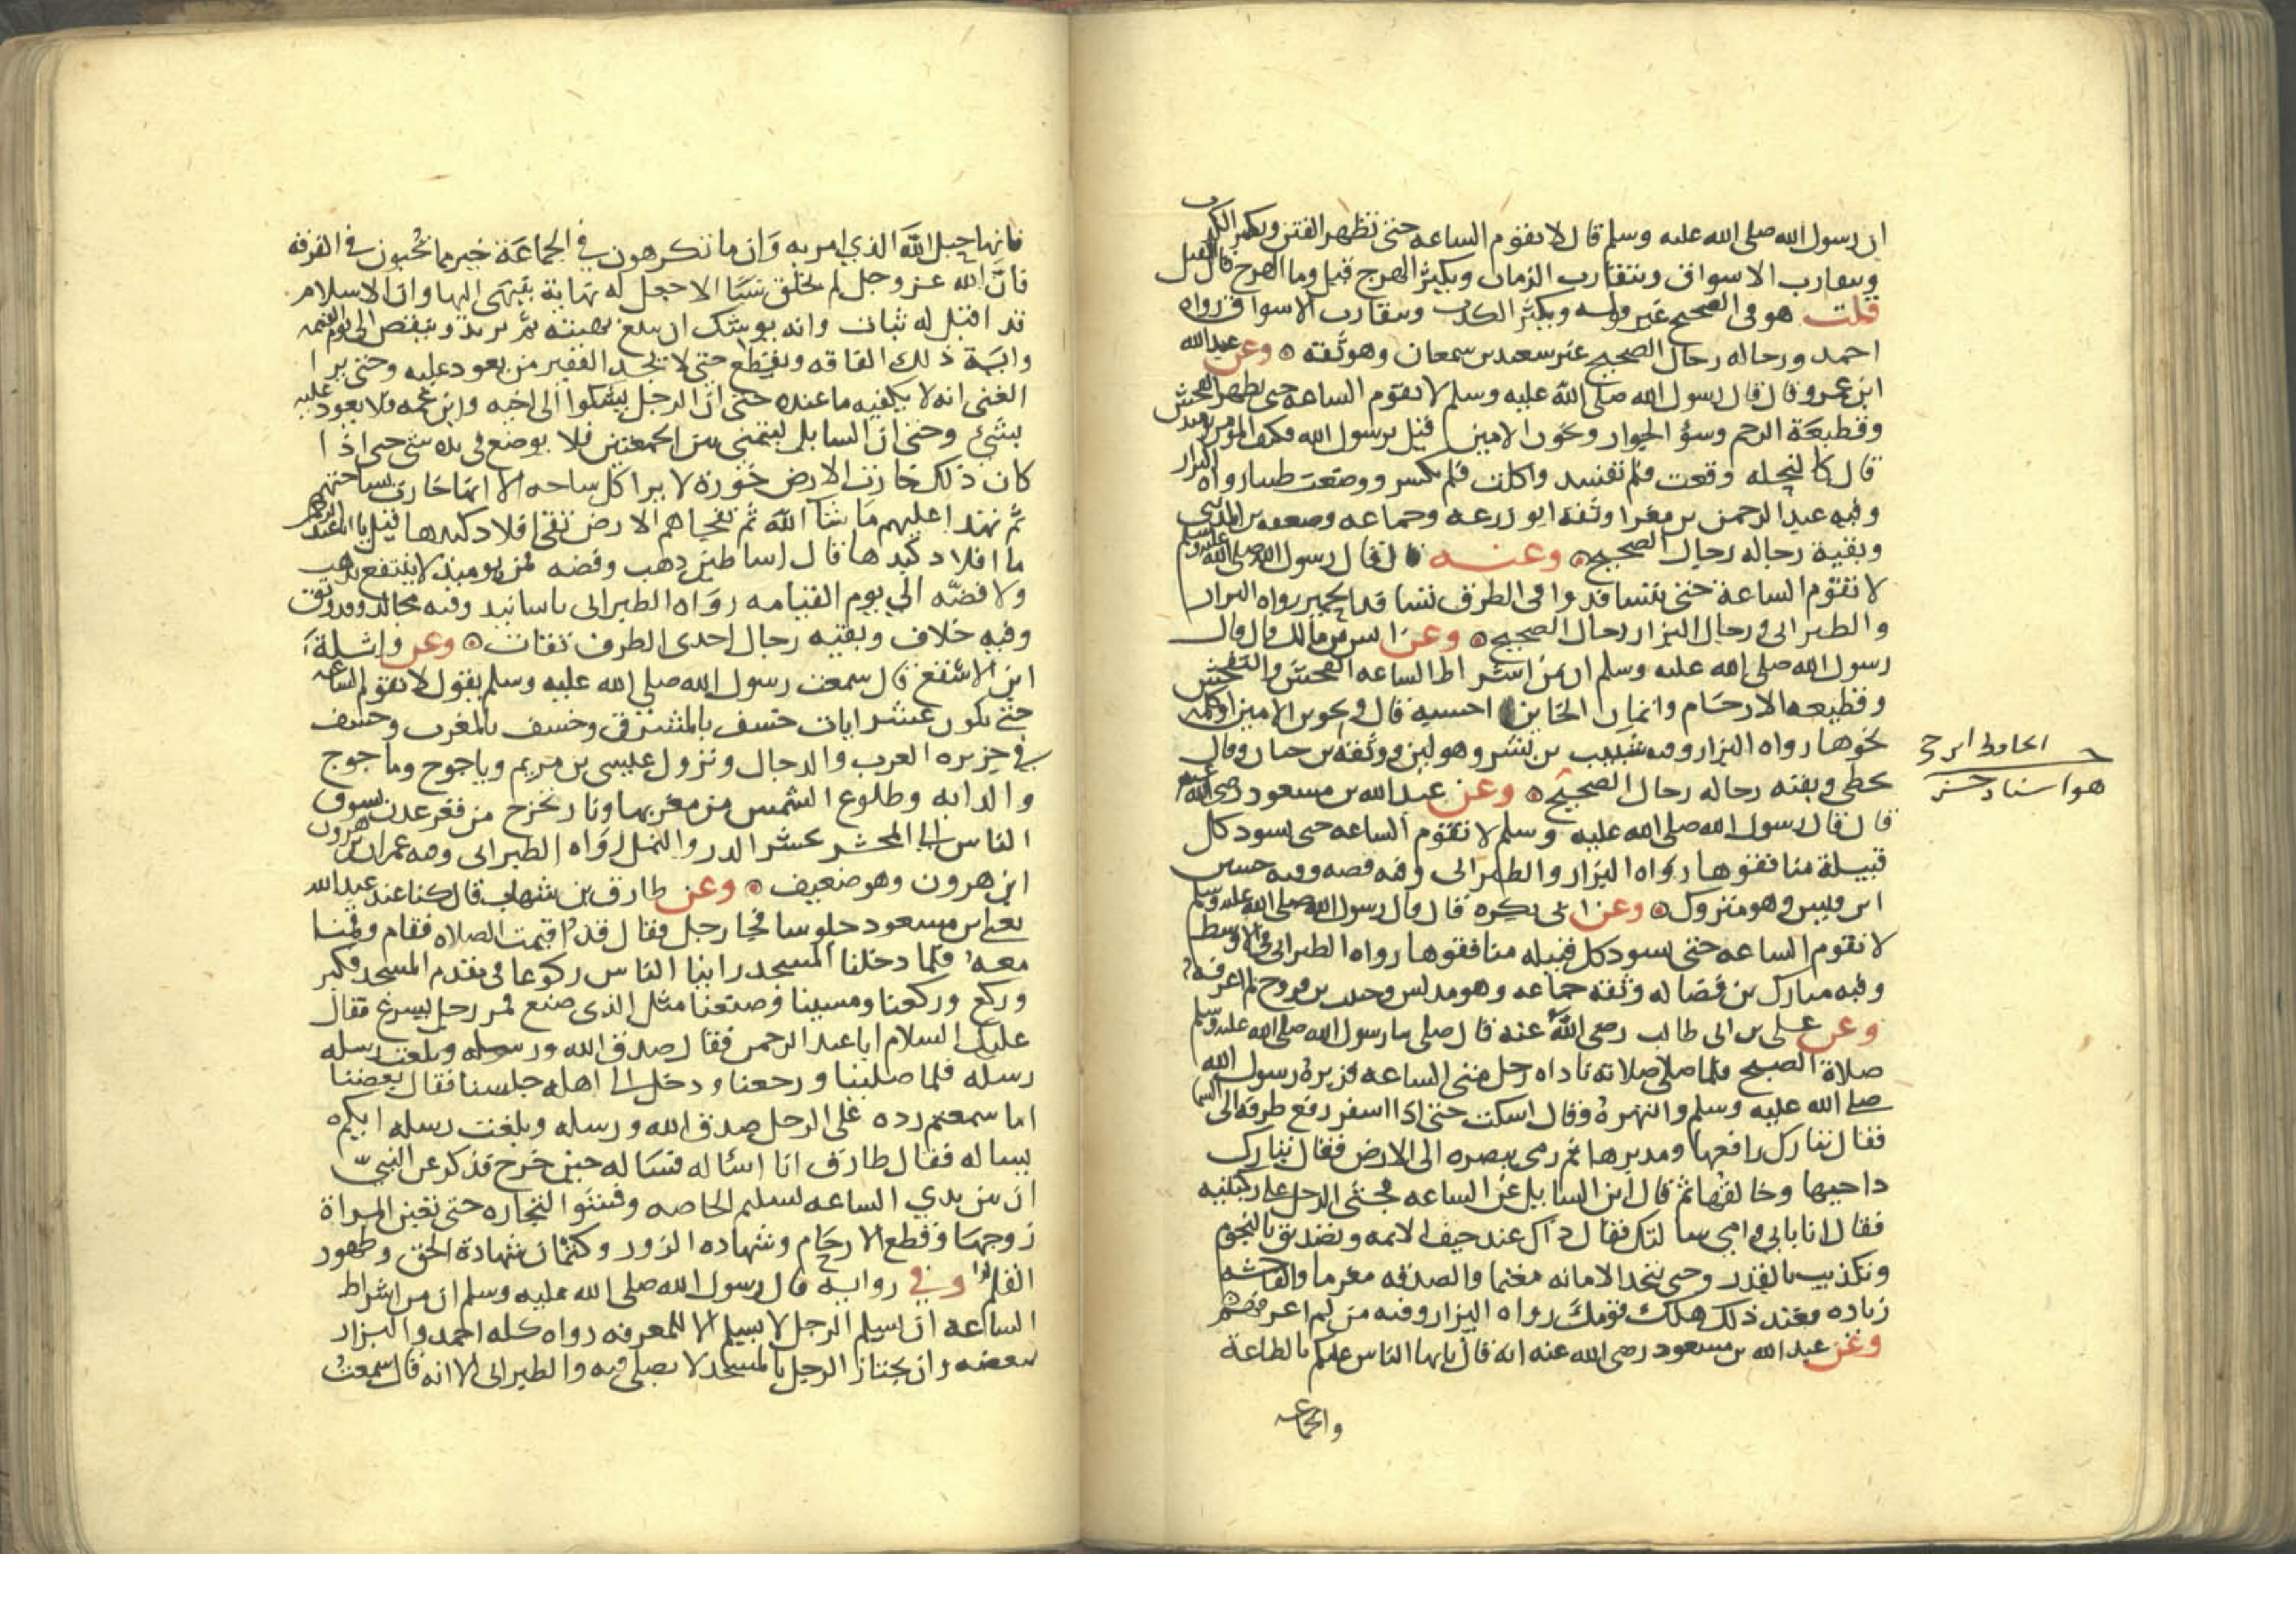 ان رسول الله صلى الله عليه وسلم قال لا تقوم الساعه حتى تظهر الفتن ويكثر الكذب
وتتقارب الاسواق ويتقارب الزمان ويكثر الهرج قيل وما الهرج قال القتل
قلت هو في الصحيح غير قوله ويكثر الكذب وتتقارب الاسواق رواه
احمد ورجاله رجال الصحيح غير سعيد بن سمعان وهو ثقة وعن عبد الله
ابن عمرو قال قال رسول الله صلى الله عليه وسلم لا تقوم الساعه حتى يظهر الفحش
وقطيعة الرحم وسؤ الجوار ويخون الامين قيل يرسول الله فكيف المؤمن يوميذ
قال كالنحله وقعت فلم تفسد واكلت فلم تكسر ووضعت طيبا رواه البزار
وفيه عبد الرحمن بن مغرا وثقه ابو زرعه وجماعه وضعفه بن المديني
وبقية رجاله رجال الصحيح وعنه قال قال رسول الله صلى الله عليه وسلم
لا تقوم الساعة حتى يتسافدوا في الطرق تسافد الحمير رواه البزار
والطبراني ورجال البزار رجال الصحيح وعن انس بن مالك قال قال
رسول الله صلى الله عليه وسلم ان من اشراط الساعه الفحش والتفحش
وقطيعه الارحام وائتمان الخاين احسبه قال وتخوين الامين او كلمه
نحوها رواه البزار وفيه شبيب بن بشر وهو لين ووثقه بن حبان وقال
يخطي وبقيه رجاله رجال الصحيح وعن عبد الله بن مسعود رضي الله عنه
الحافظ ابن حجر
هو اسناد حسن
قال قال رسول الله صلى الله عليه وسلم لا تقوم الساعه حتى يسود كل
قبيلة منافقوها رواه البزار والطبراني وفيه قصه وفيه حسين
ابن قيس وهو متروك وعن ابي بكره قال قال رسول الله صلى الله عليه وسلم
لا تقوم الساعه حتى يسود كل قبيله منافقوها رواه الطبراني في الاوسط
وفيه مبارك بن فضاله وثقه جماعه وهو مدلس وحبيب بن فروخ لم اعرفه
وعن علي بن ابي طالب رضي الله عنه قال صلى بنا رسول الله صلى الله عليه وسلم
صلاة الصبح فلما صلى صلاته ناداه رجل متى الساعه فزبره رسول الله
صلى الله عليه وسلم وانتهره وقال اسكت حتى اذا اسفر رفع طرفه الى السما
فقال تبارك رافعها ومدبرها ثم رمى ببصره الى الارض فقال تبارك
داحيها وخالقها ثم قال اين السايل عن الساعه فجثى الرجل على ركبتيه
فقال انا بابي وامي سالتك فقال ذاك عند حيف الايمه وتصديق بالنجوم
وتكذيب بالقدر وحتى تتخذ الامانه مغنما والصدقه مغرما والفاحشه
زياده فعند ذلك هلك قومك رواه البزار وفيه من لم اعرفهم
وعن عبد الله بن مسعود رضي الله عنه انه قال يايها الناس عليكم بالطاعة
والجماعه
فانها حبل الله الذي امر به وان ما تكرهون في الجماعة خير مما تحبون في الفرقه
فان الله عز وجل لم يخلق شيا الا جعل له نهاية ينتهي اليها وان الاسلام
قد اقبل له ثبات وانه يوشك ان يبلغ نهيته ثم يزيد وينقص الى يوم القيمه
واية ذلك الفاقه وتقطع حتى لا يجد الفقير من يعود عليه وحتى يرا
الغني انه لا يكفيه ما عنده حتى ان الرجل يشكوا الى اخيه وابن عمه فلا يعود عليه
بشئ وحتى ان السايل ليتمنى بين الجمعتين فلا يوضع في يده شي حتى اذا
كان ذلك خارت الارض خورة لا يرا كل ساحه الا انها خارت بساحتهم
ثم تهدا عليهم ما شا الله ثم تفجاهم الارض تقئ افلاد كبدها قيل يا ابا عبد الرحمن
ما افلاد كبدها قال اساطين ذهب وفضه فمن يوميذ لا ينتفع بذهب
ولا فضه الى يوم القيامه رواه الطبراني باسانيد وفيه مجالد وقد وثق
وفيه خلاف وبقيه رجال احدى الطرق ثقات وعن واثلة
ابن الاسقع قال سمعت رسول الله صلى الله عليه وسلم يقول لا تقوم الساعه
حتى تكون عشر ايات خسف بالمشرق وخسف بالمغرب وخسف
في جزيره العرب والدجال ونزول عيسى بن مريم وياجوج وماجوج
والدابه وطلوع الشمس من مغربها ونار تخرج من قعر عدن تسوق
الناس الى المحشر تحشر الدر والنمل رواه الطبراني وفيه عمران بن هرون
ابن هرون وهو ضعيف وعن طارق بن شهاب قال كنا عند عبد الله
يعني ابن مسعود جلوسا فجا رجل فقال قد اقيمت الصلاه فقام وقمنا
معه فلما دخلنا المسجد راينا الناس ركوعا في مقدم المسجد فكبر
وركع وركعنا ومشينا وصنعنا مثل الذي صنع فمر رجل يسرع فقال
عليك السلام ابا عبد الرحمن فقال صدق الله ورسوله وبلغت رسله
رسله فلما صلينا ورجعنا ودخل الى اهله جلسنا فقال بعضنا
اما سمعتم رده على الرجل صدق الله ورسله وبلغت رسله ايكم
يساله فقال طارق انا اساله فساله حين خرج فذكر عن النبي
ان بين يدي الساعه تسليم الخاصه وفشو التجاره حتى تعين المراة
زوجها وقطع الارحام وشهاده الزور وكتمان شهادة الحق وظهور
القلم وفي رواية قال رسول الله صلى الله عليه وسلم ان من اشراط
الساعه ان يسلم الرجل لا يسلم الا للمعرفه رواه كله احمد والبزار
ببعضه وان يجتاز الرجل بالمسجد لا يصلي فيه والطبراني الا انه قال سمعت